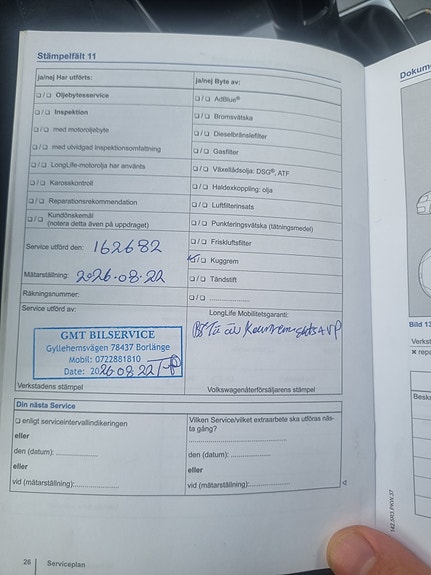 Stämpelfält 11
ja/nej Har utförts:
❑ / ❑ Oljebytesservice
❑ / ❑ Inspektion
❑ / ❑ med motoroljebyte
❑ / ❑ med utvidgad inspektionsomfattning
❑ / ❑ LongLife-motorolja har använts
❑ / ❑ Karosskontroll
❑ / ❑ Reparationsrekommendation
❑ / ❑ Kundönskemål
(notera detta även på uppdraget)
Service utförd den: 162682
Mätarställning: 2026.08.22
Räkningsnummer:
Service utförd av:
GMT BILSERVICE
Gyllehemsvägen 78437 Borlänge
Mobil: 0722881810
Date: 2026.08.22
Verkstadens stämpel
ja/nej Byte av:
❑ / ❑ AdBlue®
❑ / ❑ Bromsvätska
❑ / ❑ Dieselbränslefilter
❑ / ❑ Gasfilter
❑ / ❑ Växellådsolja: DSG®, ATF
❑ / ❑ Haldexkoppling: olja
❑ / ❑ Luftfilterinsats
❑ / ❑ Punkteringsvätska (tätningsmedel)
❑ / ❑ Friskluftsfilter
❑ / ❑ Kuggrem
❑ / ❑ Tändstift
❑ / ❑ ......................
LongLife Mobilitetsgaranti:
VP
Volkswagenåterförsäljarens stämpel
Din nästa Service
❑ enligt serviceintervallindikeringen
eller
den (datum): ................
eller
vid (mätarställning):................
Vilken Service/vilket extraarbete ska utföras näs-
ta gång?
den (datum): ................
eller
vid (mätarställning):................
26 Serviceplan
Dokum
Bild 13
Verkst
× repa
Besk
142.5R3.PKW.37